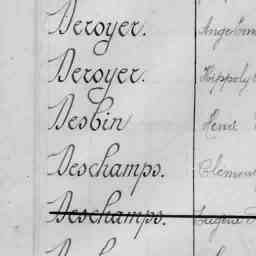 Deroyer.
Deroyer. Hippoly
Desbin Henri
Deschamps. Clément
Deschamps. Eugène